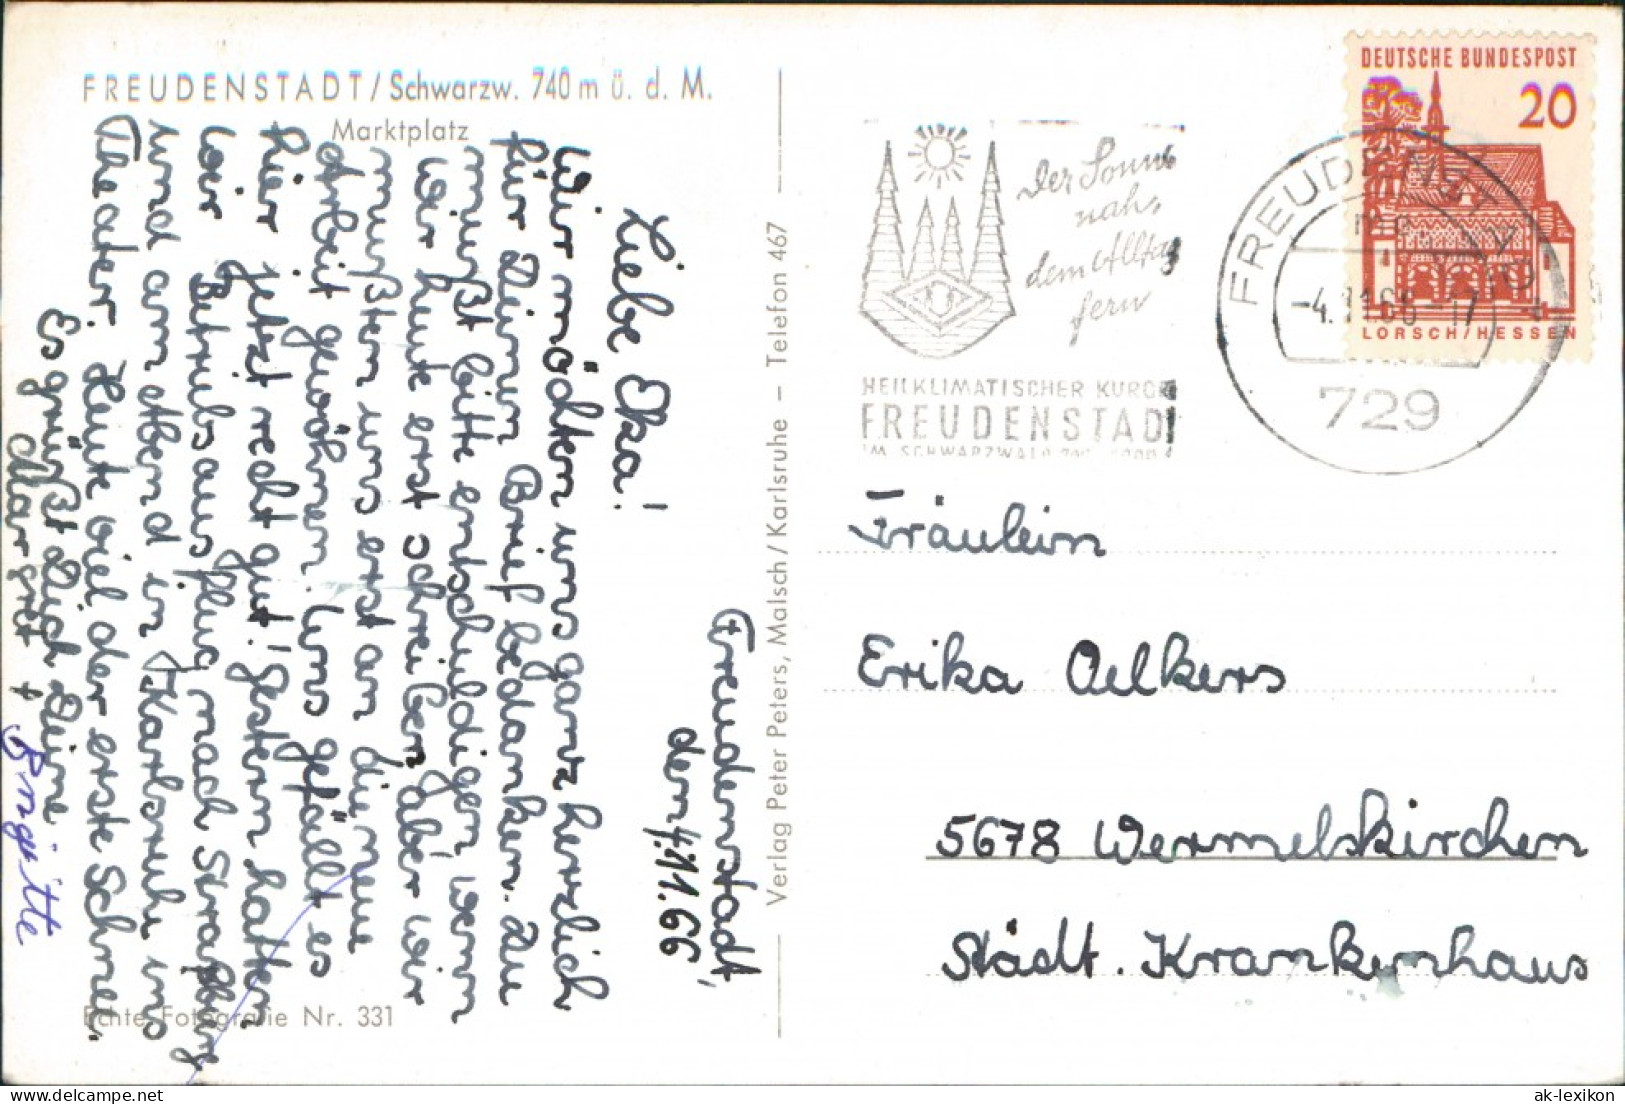 FREUDENSTADT/Schwarzw. 740 m ü. d. M.
Marktplatz
Freudenstadt,
den 4.11.66
Liebe Eka!
Wir möchten uns ganz herzlich
für Deinen Brief bedanken. Du
mußt bitte entschuldigen, wenn
wir heute erst schreiben, aber wir
mußten uns erst an die neue
Arbeit gewöhnen. Uns gefällt es
hier jetzt recht gut! Gestern hatten
wir Betriebsausflug nach Straßburg
und am Abend in Karlsruhe ins
Theater. Heute viel der erste Schnee.
Es grüßt Dich Deine
Margret +
Brigitte
Echte Fotografie Nr. 331
Verlag Peter Peters, Malsch/Karlsruhe – Telefon 467
Der Sonne
nah,
dem Alltag
fern
HEILKLIMATISCHER KURO
FREUDENSTAD
IM SCHWARZWALD
DEUTSCHE BUNDESPOST
20
LORSCH/HESSEN
FREUDENSTADT
-4.11.66-17
729
Fräulein
Erika Oelkers
5678 Wermelskirchen
Städt. Krankenhaus
ak-lexikon